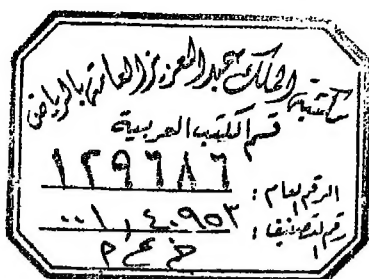 مكتبة الملك عبد العزيز العامة بالرياض
قسم الكتب العربية
الرقم العام : ١٢٩٦٨٦
رقم التصنيف : ٠٠١,٤٠٩٥٣
خ ع م